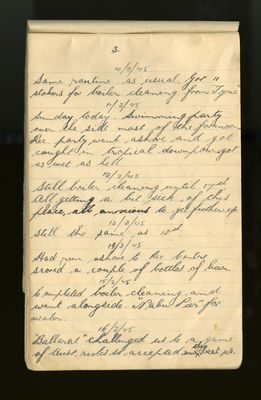 3.
10/2/45
Same routine as usual. Got 11
stokers for boiler cleaning from "Tyne"
11/2/45
Sunday today. Swimming party
over the side most of the forenoon
Rec party went ashore and got
caught in tropical downpour got
as wet as hell
12/2/45
Still boiler cleaning until 17th
All getting a bit sick of this
place, all anxious to get further up
13/2/45
Still the same as 12th
14/2/45
Had run ashore to the
scored a couple of bottles of beer.
15/2/45
Completed boiler cleaning and
went alongside "Nabu Pier" for
water.
16/2/45
Ballarat" challenged us to a game
of Aust. rules so accepted. They beat us.